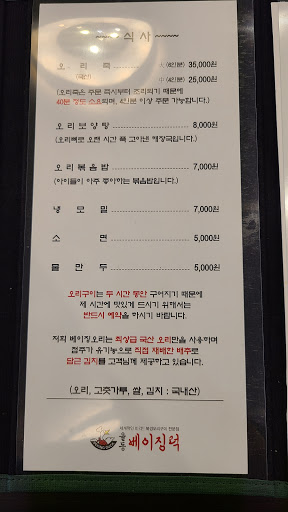 ~~~ 식 사 ~~~
오 리 죽 ........ 大 (6인분) 35,000원
(국산) 中 (4인분) 25,000원
(오리죽은 주문 즉시부터 조리되기 때문에
40분 정도 소요되며, 4인분 이상 주문 가능합니다.)
오리보양탕 ........ 8,000원
(오리뼈로 오랜 시간 푹 고아낸 해장국입니다.)
오리볶음밥 ........ 7,000원
(아이들이 아주 좋아하는 볶음밥입니다.)
냉 모 밀 ........ 7,000원
소 면 ........ 5,000원
물 만 두 ........ 5,000원
오리구이는 두 시간 동안 구어지기 때문에
제 시간에 맛있게 드시기 위해서는
반드시 예약을 하시기 바랍니다.
저희 베이징오리는 최상급 국산 오리만을 사용하며
점주가 유기농으로 직접 재배한 배추로
담근 김치를 고객님께 제공하고 있습니다.
(오리, 고춧가루, 쌀, 김치 : 국내산)
베이징덕